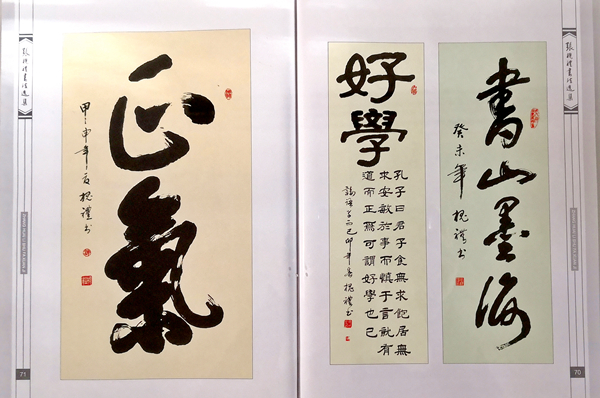 張槐禮書法選集
書山墨海
癸未年 槐禮书
70
好學
孔子曰君子食無求飽居無
求安敏於事而慎于言就有
道而正焉可謂好學也已
論語 己卯年 槐禮书
正氣
甲申年夏 槐禮书
張槐禮書法選集
71